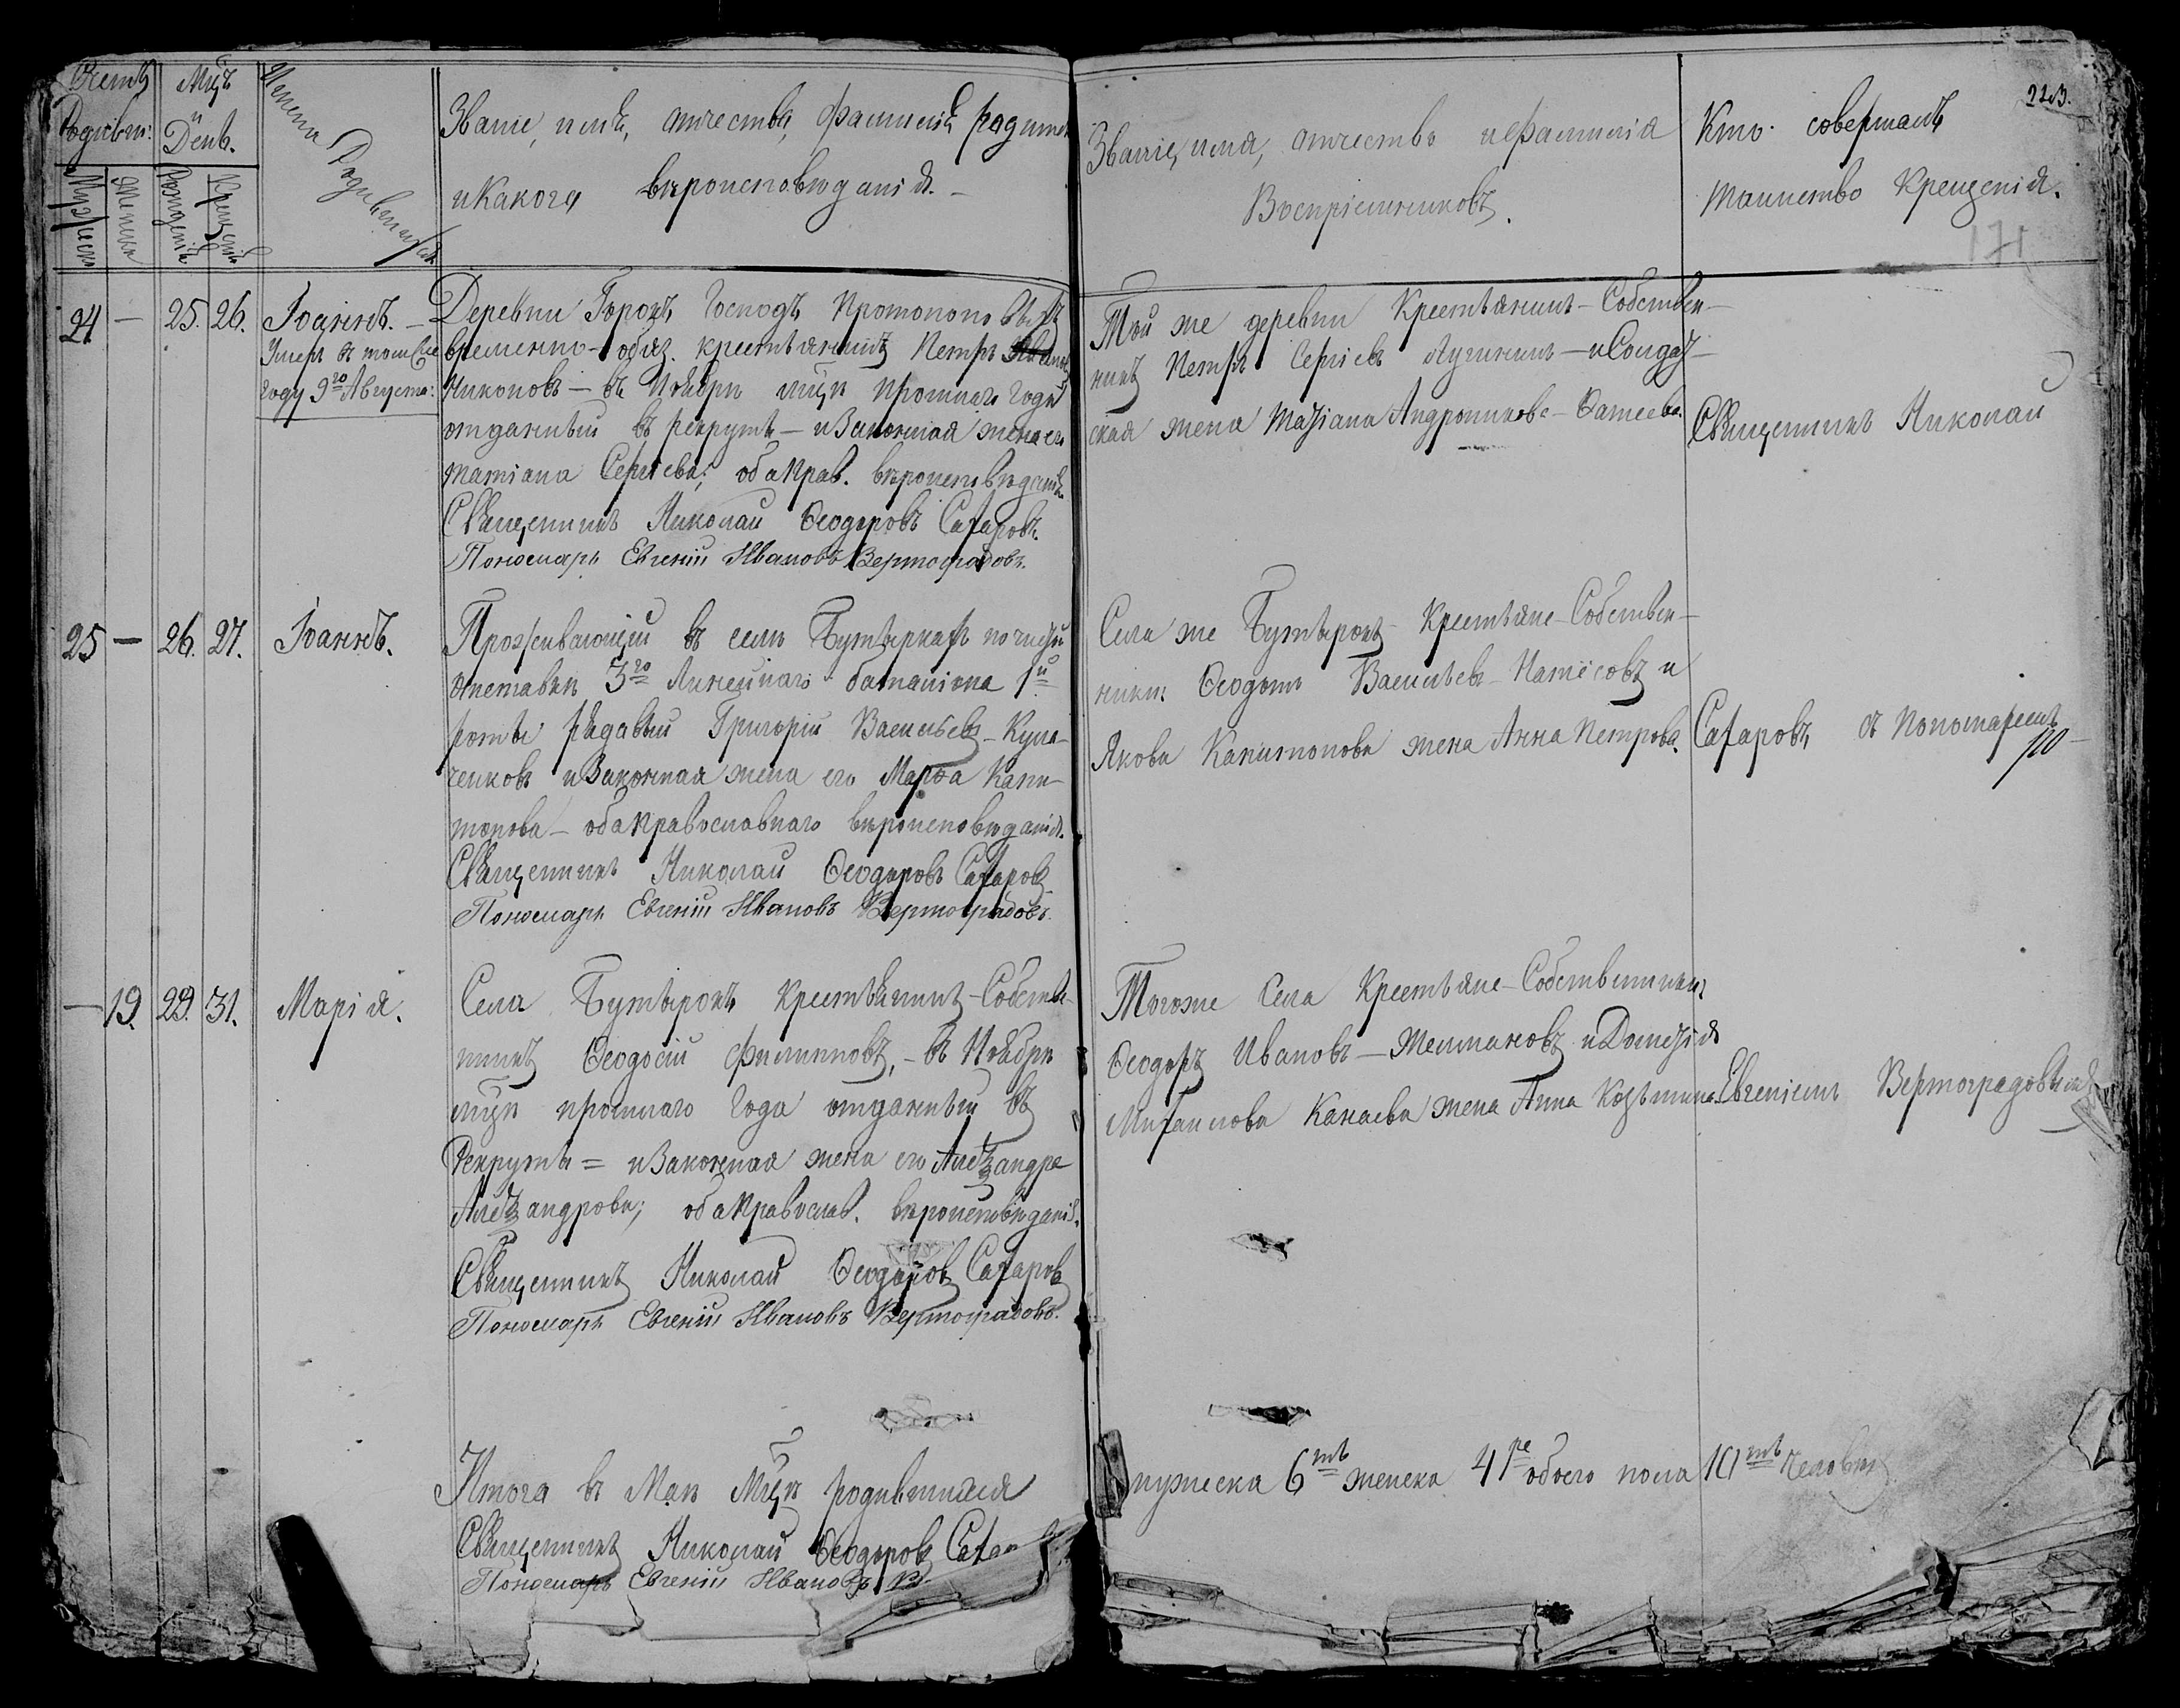 Счетъ Родивш:
Мцъ и День.
Имена Родившихся
Мужеска
Женска
Рожденія
Крещенія
Званіе, имя, отчество, фамилія родит
и какого вѣроисповѣданія.
Званіе, имя, отчество и фамилія
Воспріемниковъ.
Кто совершалъ
таинство крещенія.
223.
171
24 — 25. 26. Іоаннъ. —
Умеръ въ томъ же
году 9го Августа:
Деревни Господъ Протопоповыхъ
временно-обяз. крестьянинъ Петръ
Никоновъ — въ Ноябрѣ мцѣ прошлаго года
отданный въ рекруты — и Законная жена его
Татіана Сергіева; оба прав. вѣроисповѣданія
Священникъ Николай Ѳеодоровъ Сахаровъ.
Пономарь Евгеній Ивановъ Вертоградовъ.
Той же деревни Крестьянинъ — Собствен—
никъ Петръ Сергіевъ — и Солдат—
ская жена Татіана Андроникова
Священникъ Николай
25 — 26. 27. Іоаннъ.
Проживающій въ селѣ Бутыркахъ по чистой
отставкѣ 3го Линейнаго баталіона 1й
роты рядавый Григорій Васильевъ —
и Законная жена его Марѳа Капи—
тонова — оба православнаго вѣроисповѣданія.
Священникъ Николай Ѳеодоровъ Сахаровъ
Пономарь Евгеній Ивановъ Вертоградовъ.
Села же Бутырокъ Крестьяне — Собствен—
Васильевъ и
Якова Капитонова жена Анна Петрова.
Сахаровъ, съ Пономаремъ
— 19. 29. 31. Марія.
Села Бутырокъ крестьянинъ — Собстве—
нникъ Ѳеодосій Филипповъ, — въ Ноябрѣ
мцѣ прошлаго года отданный въ
Рекруты = и Законная жена его Александра
Александрова; оба православ. вѣроисповѣданія.
Священникъ Николай Ѳеодоровъ Сахаровъ
Пономарь Евгеній Ивановъ Вертоградовъ.
Тогоже Села Крестьяне — Собственники
Ѳеодоръ Ивановъ — и
Михаилова Канаева жена Анна Козьмина.
Евгеніемъ Вертоградовымъ
Итого въ Маѣ Мцѣ родившихся
мужеска 6ть женска 4ре обоего пола 10ть человѣкъ
Священникъ Николай Ѳеодоровъ Сахар
Пономарь Евгеній Ивановъ В